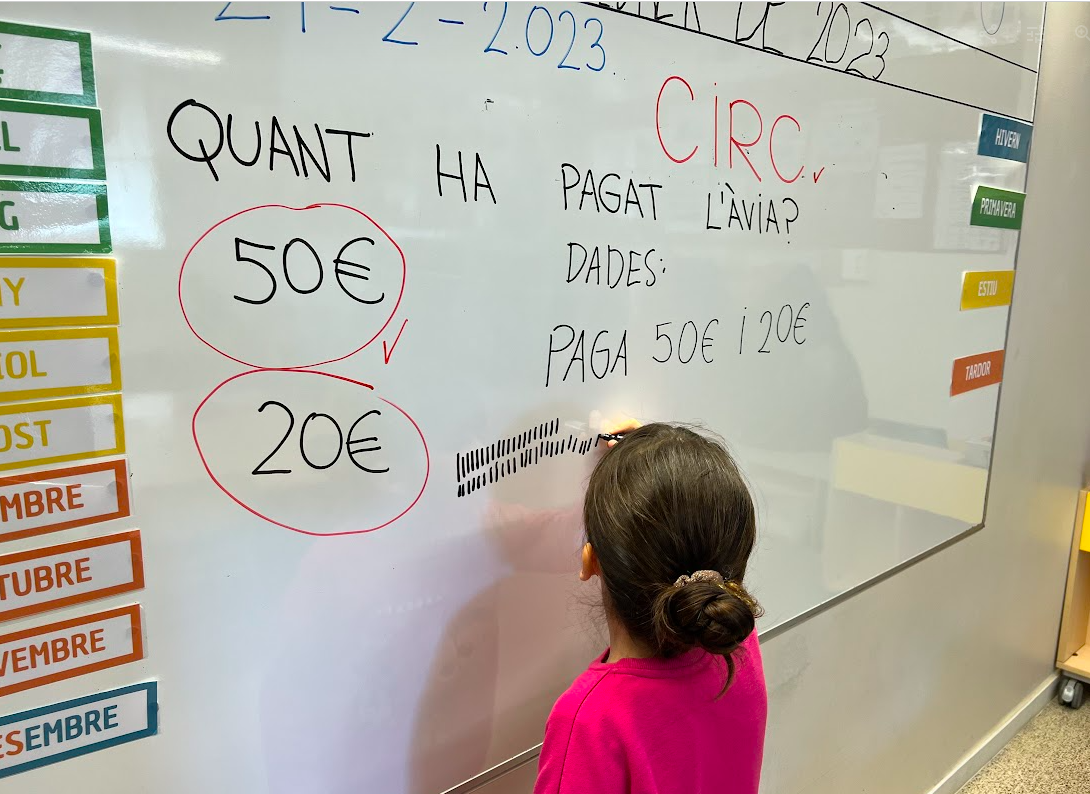 21-2-2023
DE 2023
CIRC
QUANT HA PAGAT L'ÀVIA?
50€
DADES:
PAGA 50€ I 20€
20€
HIVERN
PRIMAVERA
ESTIU
TARDOR
L
G
NY
IOL
OST
MBRE
TUBRE
VEMBRE
ESEMBRE